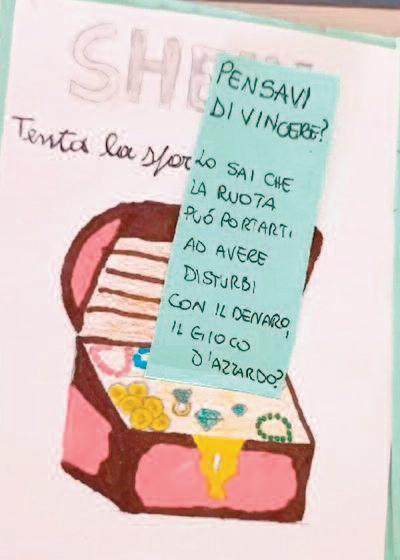 SHE
Tenta la sfor
PENSAVI
DI VINCERE?
LO SAI CHE
LA RUOTA
PUÓ PORTARTI
AD AVERE
DISTURBI
CON IL DENARO,
IL GIOCO
D'AZZARDO?